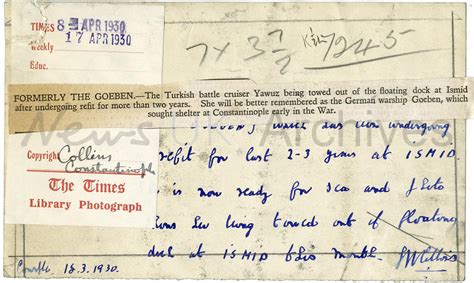 TIMES 8 APR 1930
Weekly 17 APR 1930
Educ.
7 x 3 1/2
7245
FORMERLY THE GOEBEN.—The Turkish battle cruiser Yawuz being towed out of the floating dock at Ismid
after undergoing refit for more than two years. She will be better remembered as the German warship Goeben, which
sought shelter at Constantinople early in the War.
News Archives
which has been undergoing
Copyright Collins
Constantinople
refit for last 2-3 years at ISMID
The Times
Library Photograph
is now ready for sea and
being towed out of floating
dock at ISMID this month.
15.3.1930.